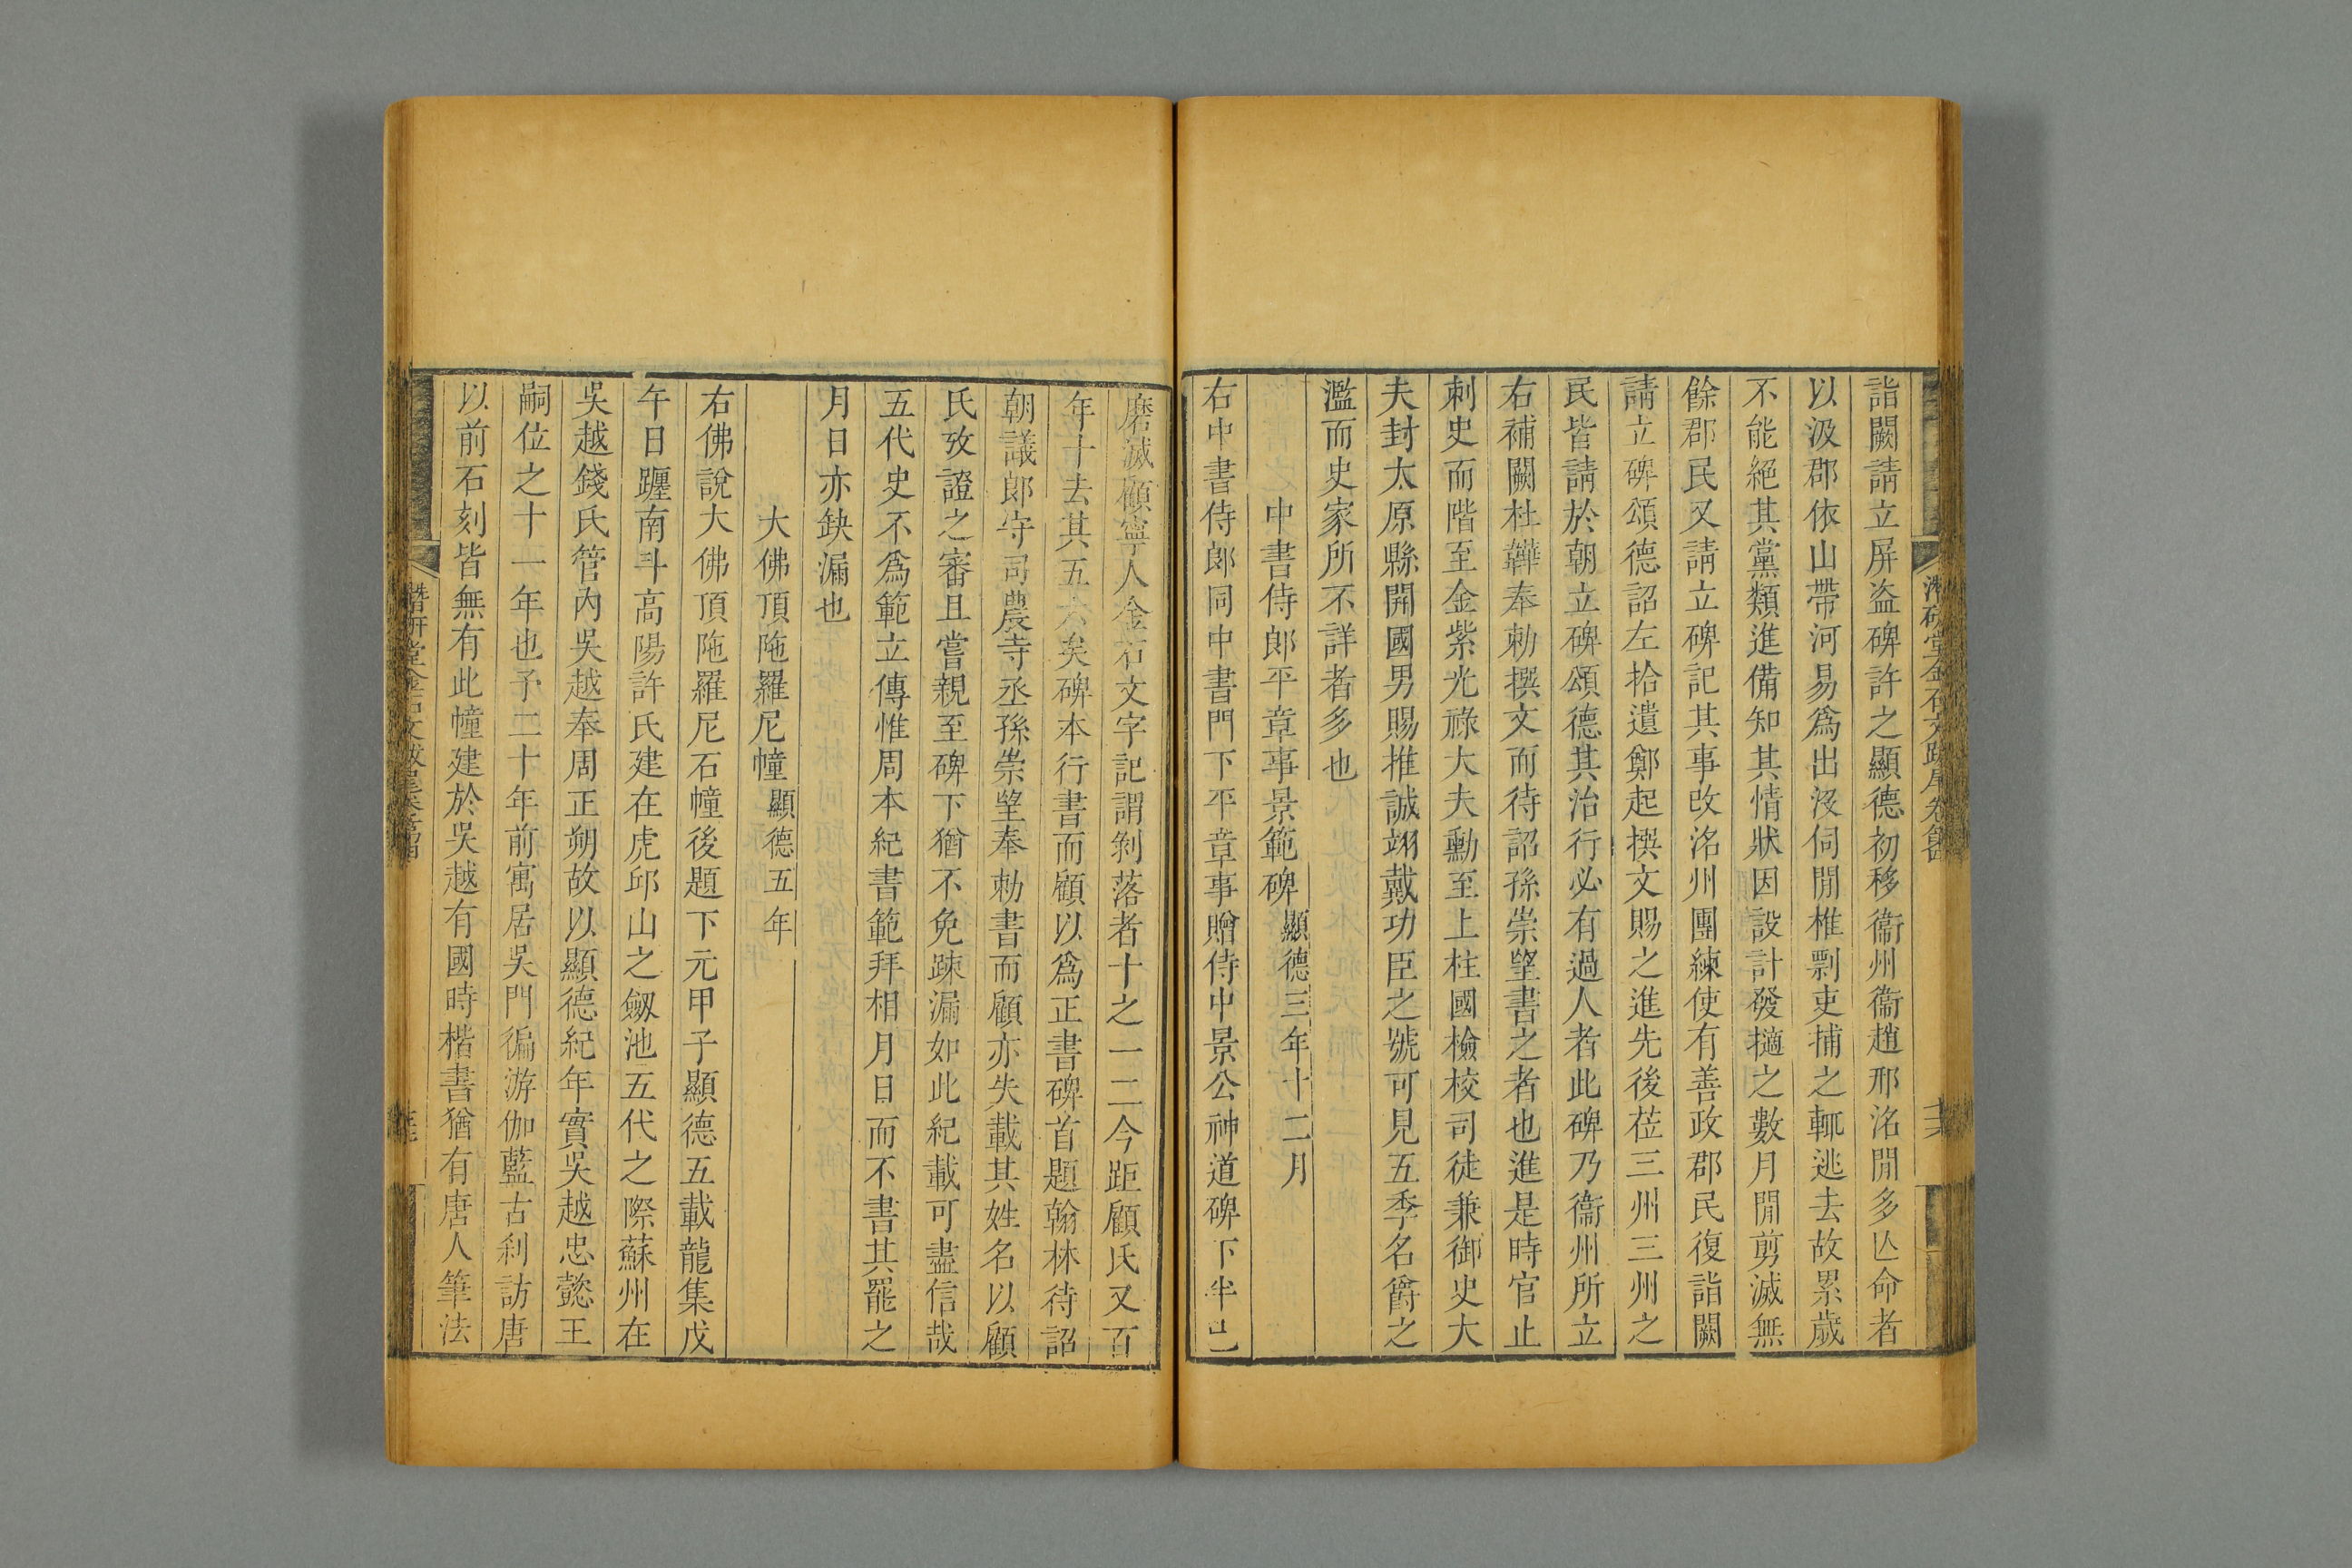 詣闕請立屏盜碑許之顯德初移衞州衞趙邢洺閒多亾命者
以汲郡依山帶河易爲出沒伺閒椎剽吏捕之輒逃去故累歲
不能絕其黨類進備知其情狀因設計發擿之數月閒剪滅無
餘郡民又請立碑記其事改洺州團練使有善政郡民復詣闕
請立碑頌德詔左拾遺鄭起撰文賜之進先後莅三州三州之
民皆請於朝立碑頌德其治行必有過人者此碑乃衞州所立
右補闕杜韡奉勅撰文而待詔孫崇望書之者也進是時官止
刺史而階至金紫光祿大夫勳至上柱國檢校司徒兼御史大
夫封太原縣開國男賜推誠翊戴功臣之號可見五季名爵之
濫而史家所不詳者多也
中書侍郎平章事景範碑顯德三年十二月
右中書侍郎同中書門下平章事贈侍中景公神道碑下半已
磨滅顧寧人金石文字記謂剝落者十之一二今距顧氏又百
年十去其五六矣碑本行書而顧以爲正書碑首題翰林待詔
朝議郎守司農寺丞孫崇望奉勅書而顧亦失載其姓名以顧
氏攷證之審且嘗親至碑下猶不免踈漏如此紀載可盡信哉
五代史不爲範立傳惟周本紀書範拜相月日而不書其罷之
月日亦缺漏也
大佛頂陁羅尼幢顯德五年
右佛說大佛頂陁羅尼石幢後題下元甲子顯德五載龍集戊
午日躔南斗高陽許氏建在虎邱山之劔池五代之際蘇州在
吳越錢氏管內吳越奉周正朔故以顯德紀年實吳越忠懿王
嗣位之十一年也予二十年前寓居吳門徧游伽藍古刹訪唐
以前石刻皆無有此幢建於吳越有國時楷書猶有唐人筆法